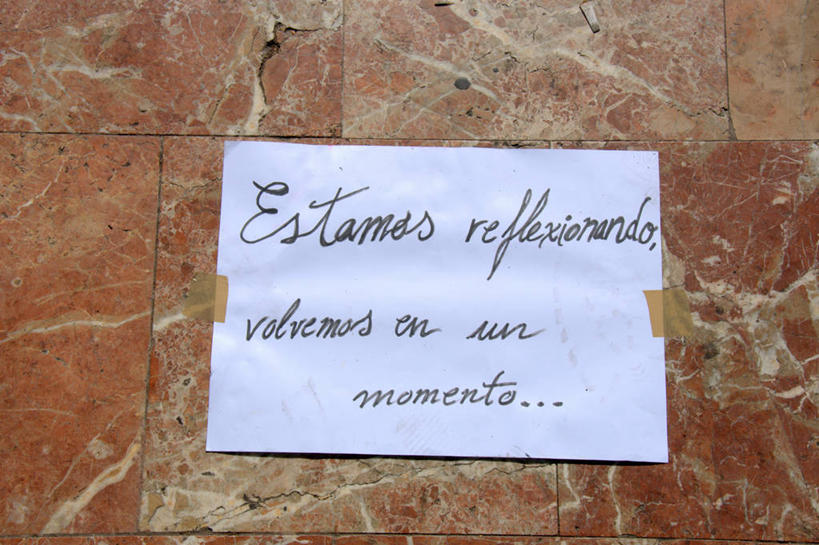 Estamos reflexionando,
volvemos en un
momento...